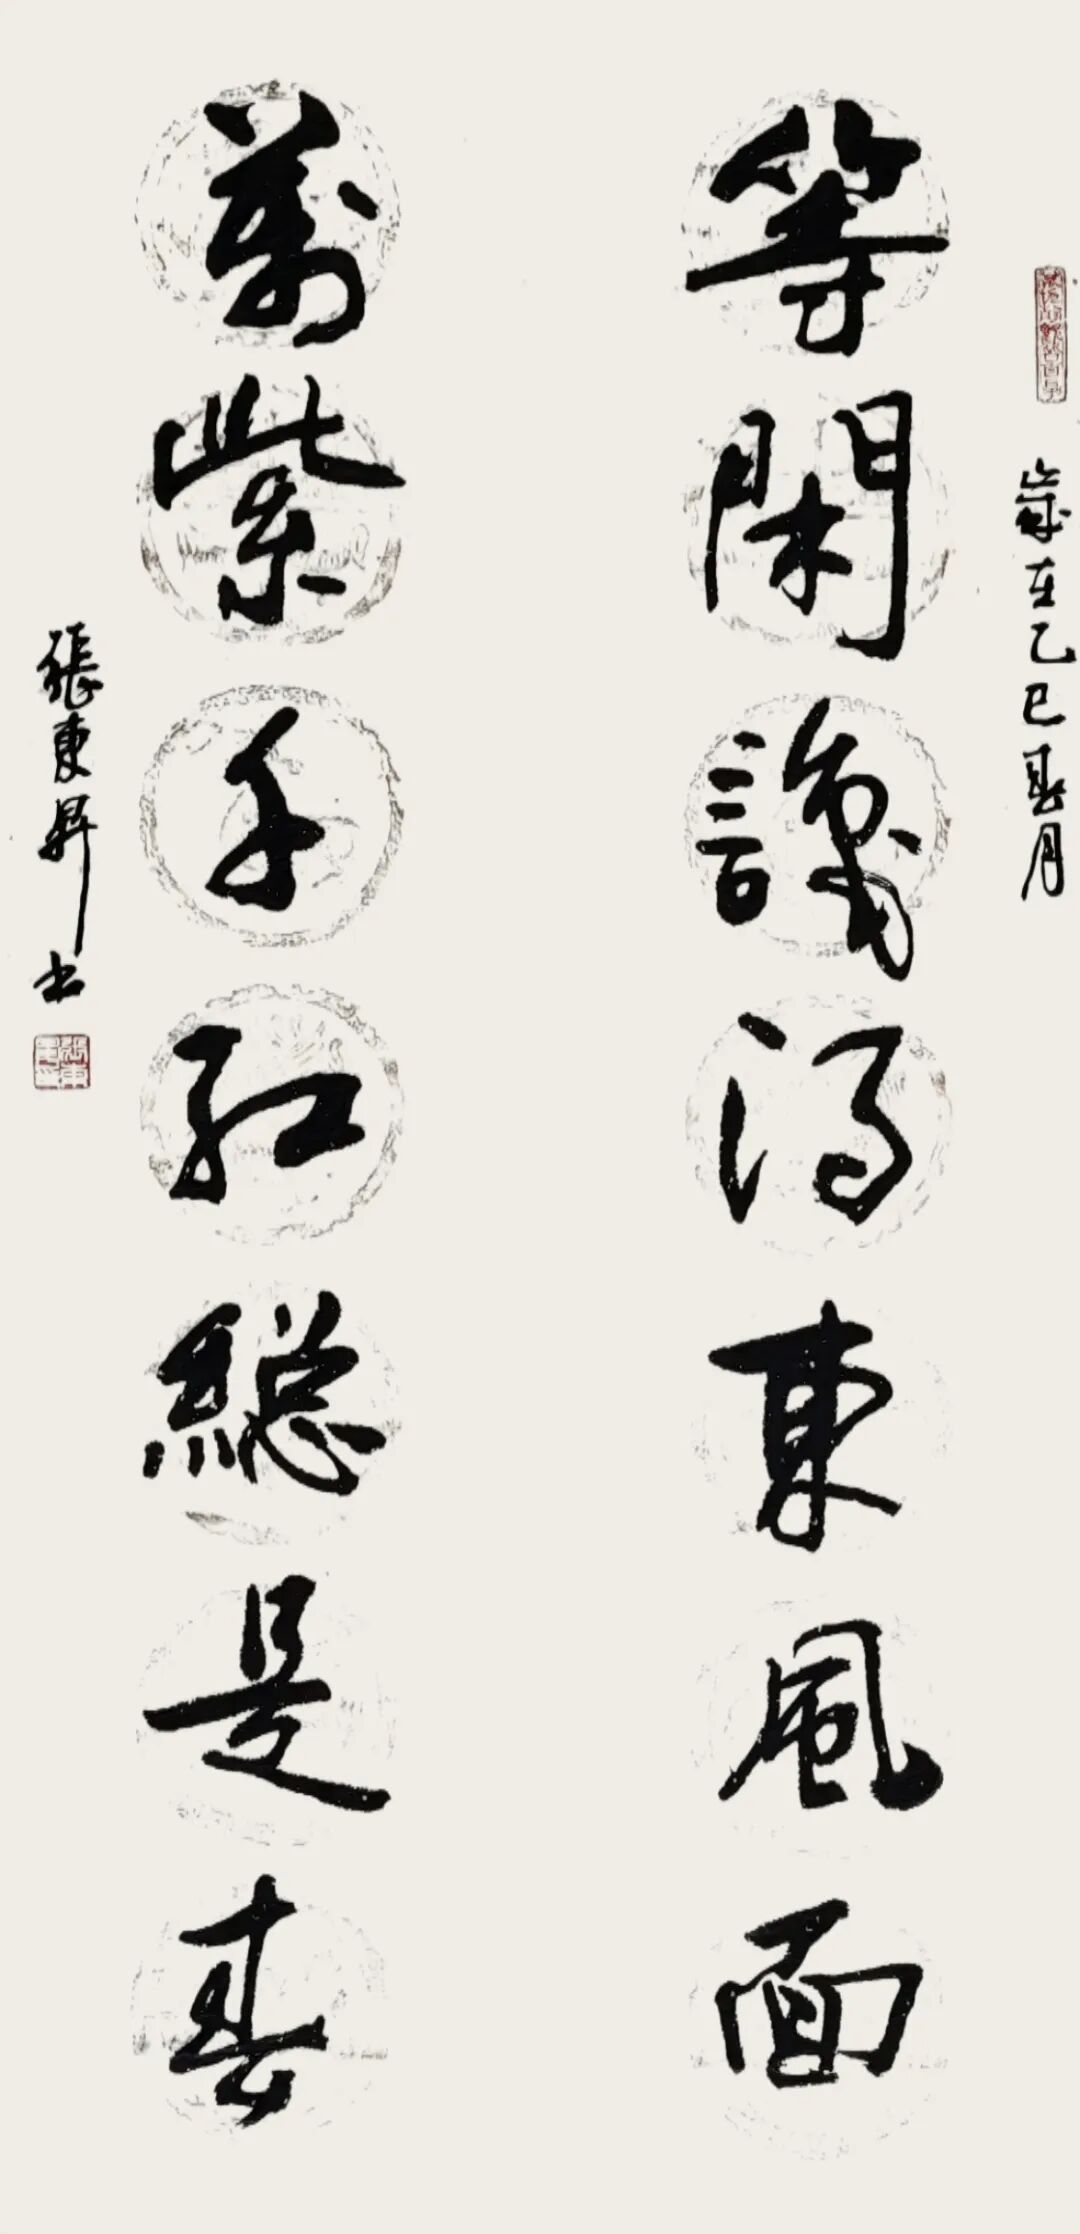 歲在乙巳春月
等閑識得東風面
萬紫千紅總是春
張東昇书